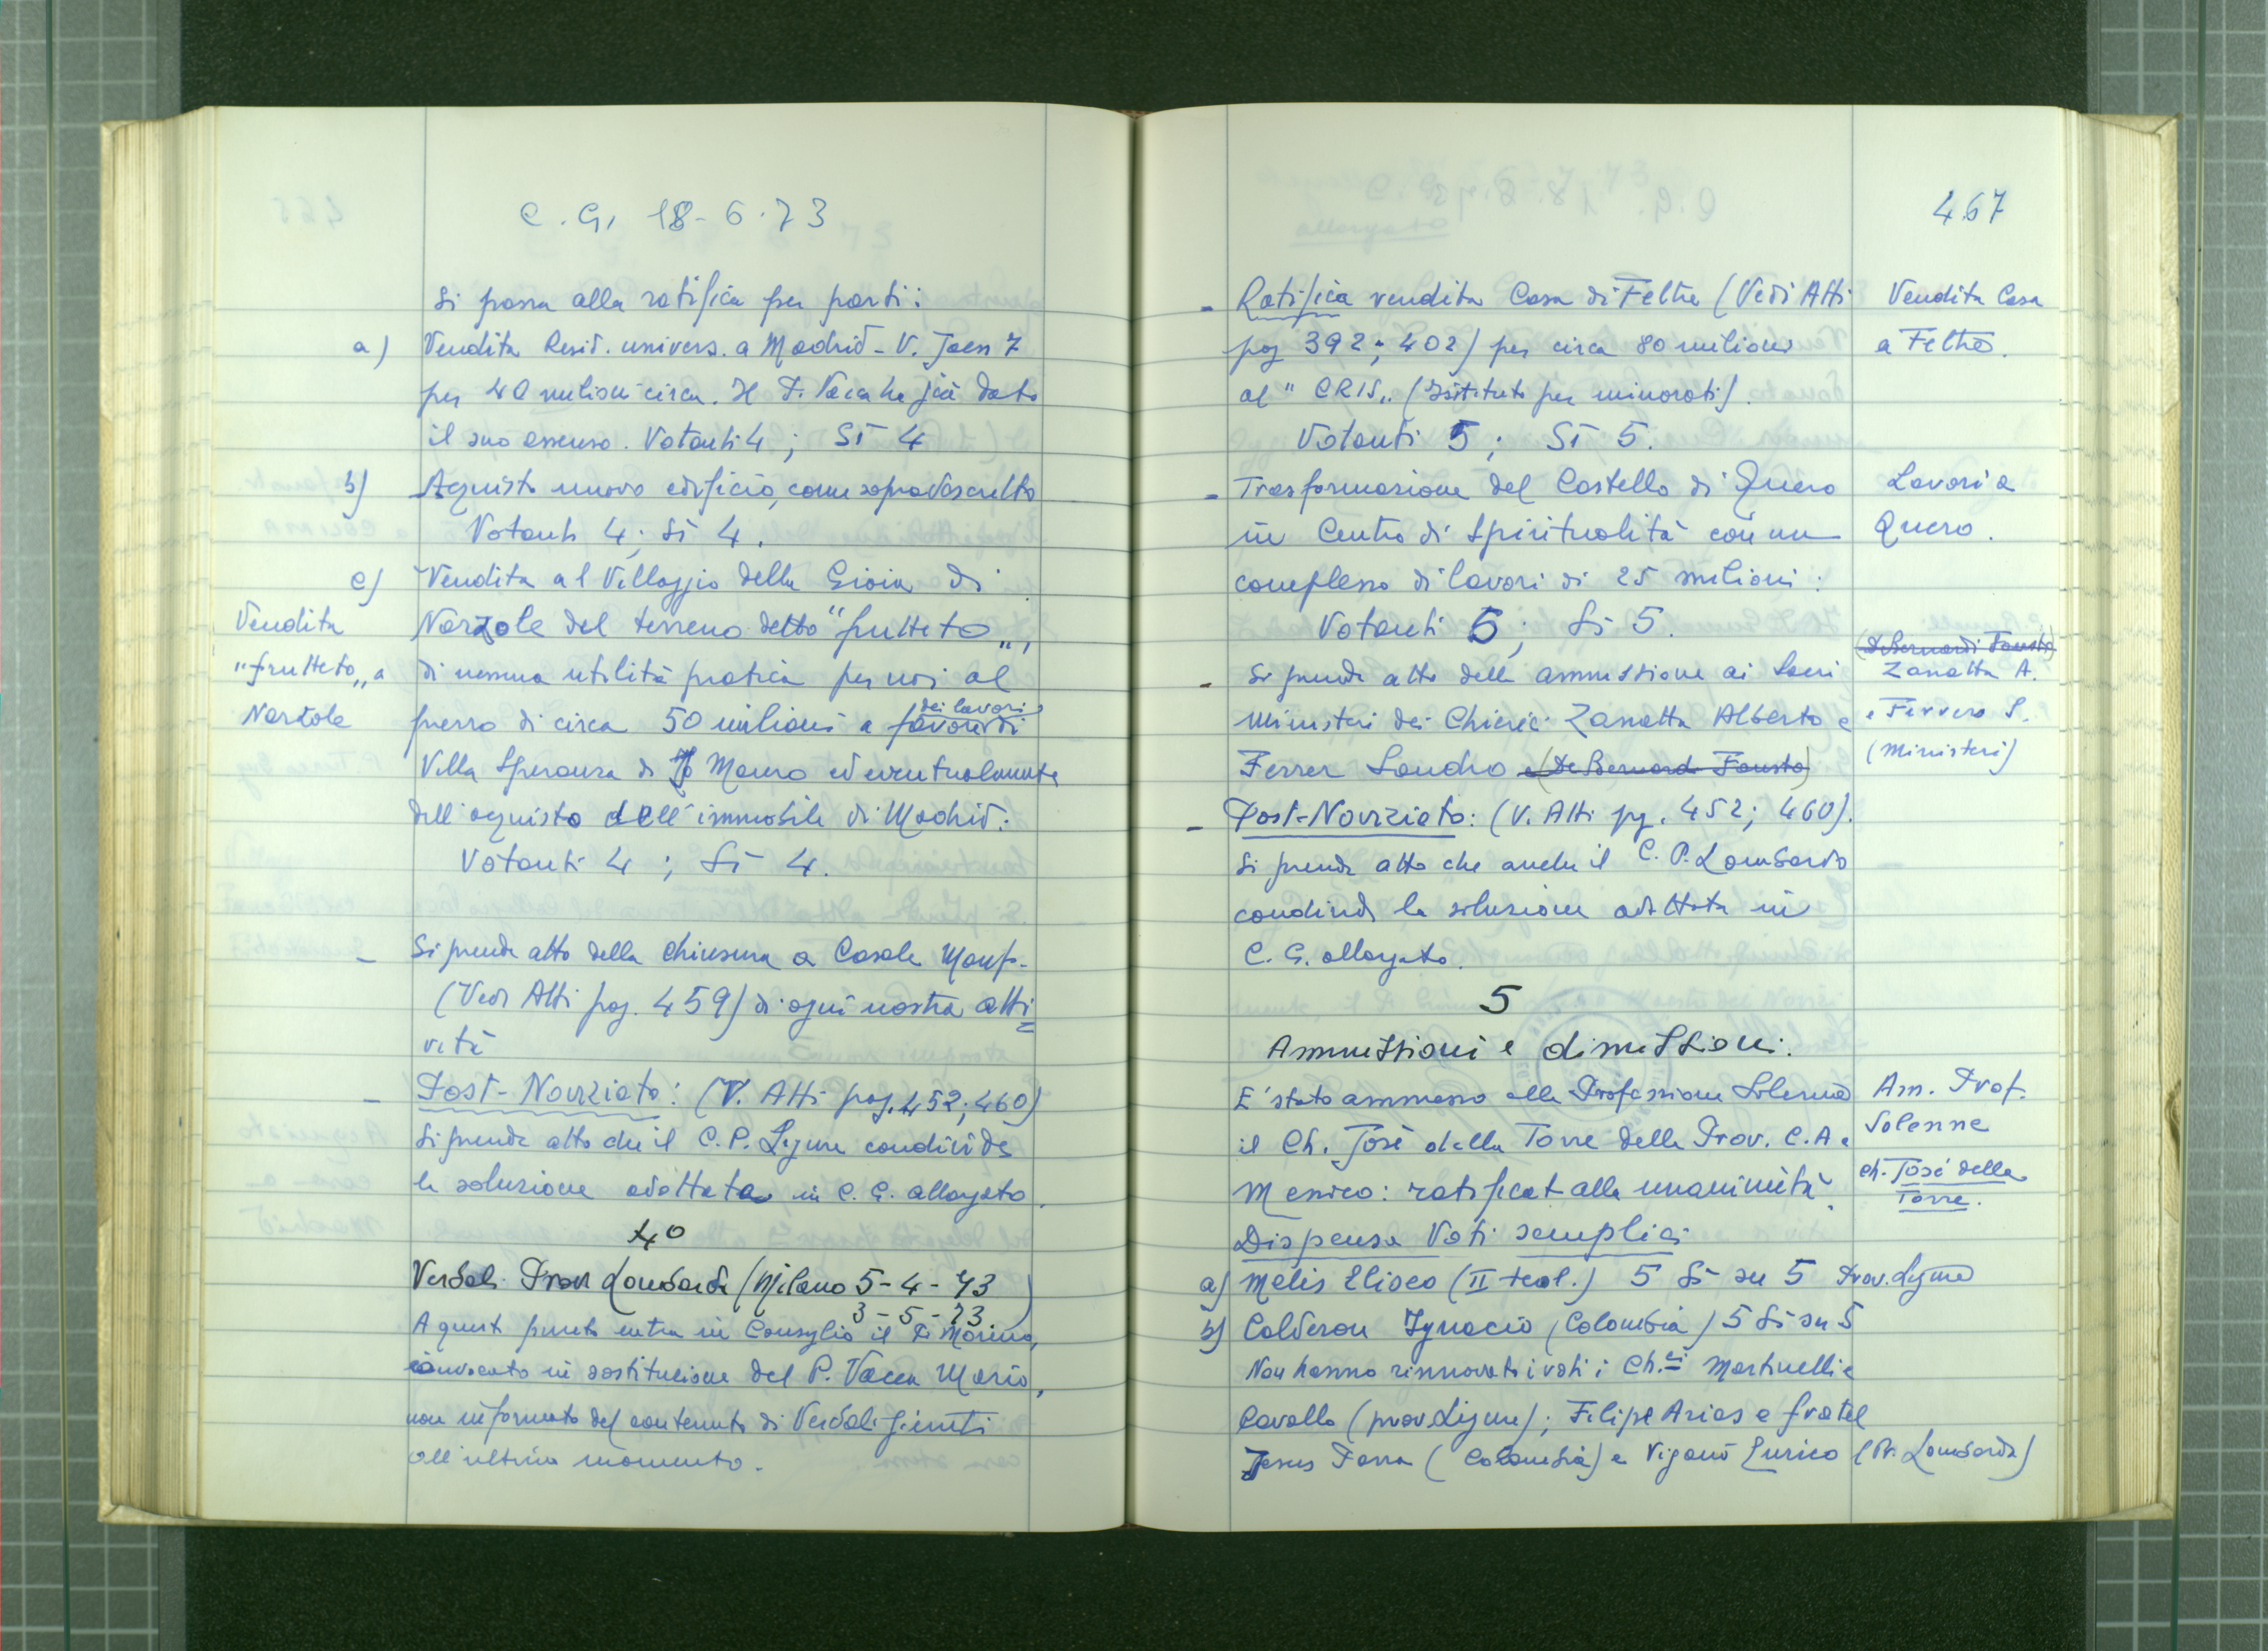 C. G. 18-6-73
Si passa alla ratifica per parti:
a) Vendita Resid. univers. a Madrid - V. Jaen 7
per 40 milioni circa. Il P. Vacca ha già dato
il suo assenso. Votanti 4; Sì 4
b) Acquisto nuovo edificio, come sopra descritto
Votanti 4; Sì 4.
c) Vendita al Villaggio della Gioia di
Vendita
Narzole del terreno detto "frutteto",
"frutteto" a
di nessuna utilità pratica per noi al
Narzole
prezzo di circa 50 milioni a favore dei lavori di
Villa Speranza di S. Mauro ed eventualmente
dell'acquisto dell'immobile di Madrid:
Votanti 4; Sì 4.
- Si prende atto della chiusura a Casale Monf.
(Vedi Atti pag. 459) di ogni nostra atti=
vità
- Post-Noviziato: (V. Atti pag. 452; 460)
Si prende atto che il C. P. Ligure condivide
la soluzione adottata in C. G. allargato.
4°
Verbali Prov Lombarda (Milano 5-4-73
3-5-73)
A questo punto entra in Consiglio il P. Moreno,
convocato in sostituzione del P. Vacca Mario,
non informato del contenuto di Verbali giunti
all'ultimo momento.
467
- Ratifica vendita Casa di Feltre (Vedi Atti
Vendita Casa
pag 392; 402) per circa 80 milioni
a Feltre.
al "CRIS" (Istituto per minorati).
Votanti 5; Sì 5.
- Trasformazione del Castello di Quero
Lavori a
in Centro di Spiritualità con un
Quero.
complesso di lavori di 25 milioni:
Votanti 5; Sì 5.
(De Bernardi Fausto)
- Si prende atto della ammissione ai Sacri
Zanatta A.
Ministeri dei Chierici Zanatta Alberto e
e Ferrero S.
Ferrer Sandro e (De Bernardi Fausto)
(Ministeri)
- Post-Noviziato: (V. Atti pg. 452; 460).
Si prende atto che anche il C. P. Lombardo
condivide la soluzione adottata in
C. G. allargato.
5
Ammissioni e dimissioni.
E' stato ammesso alla Professione Solenne
Am. Prof.
Solenne
il Ch. José della Torre della Prov. C. A e
Ch. José della
Torre.
Messico: ratificat alla unanimità.
Dispensa Voti semplici
a) Melis Eliseo (II teol.) 5 Sì su 5 Prov. Ligure
b) Calderon Ignacio (Colombia) 5 Sì su 5
Non hanno rinnovato i voti i Ch.ci Martinelli e
Cavallo (prov. Ligure); Filipe Arias e fratel
Jesus Parra (Colombia) e Viganò Enrico (Pr. Lombarda)